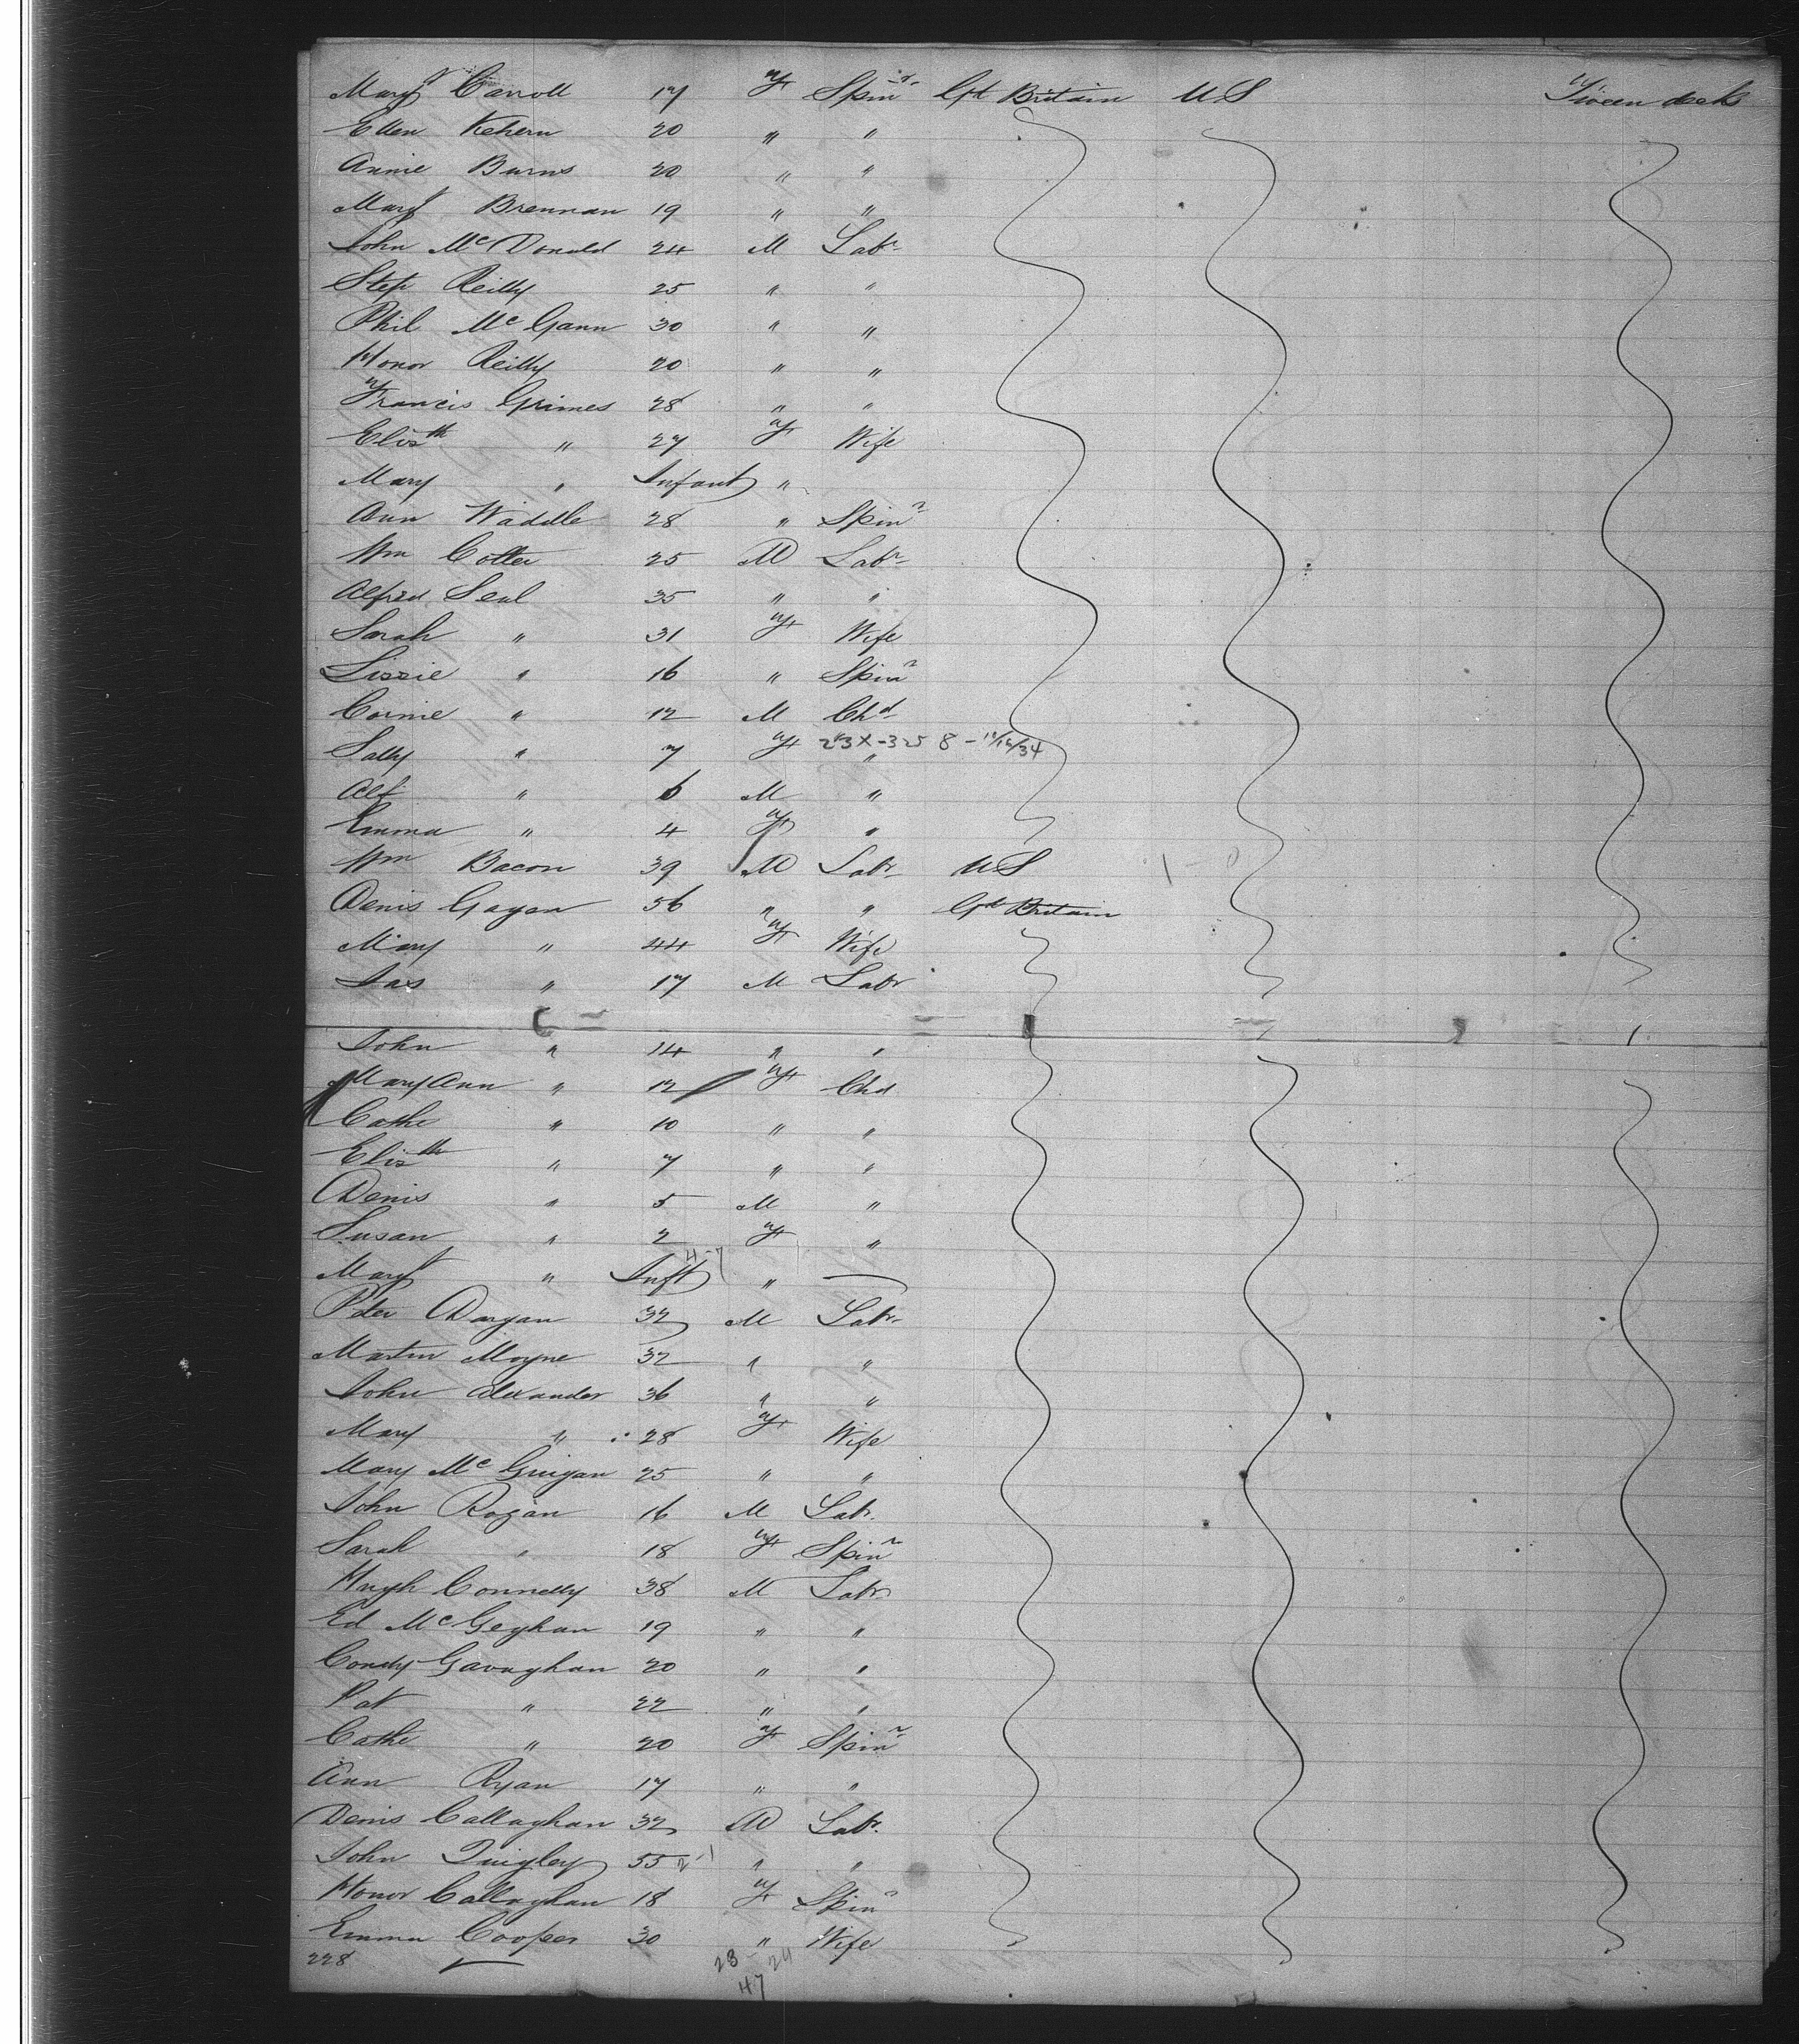 Margt Carroll 17 F Spinr Gt Britain US 'Tween decks
Ellen Kehern 20 " "
Annie Burns 20 " "
Margt Brennan 19 " "
John McDonald 24 M Labr
Step Reilly 25 " "
Phil McGann 30 " "
Honor Reilly 20 " "
Francis Grimes 28 " "
Elizth " 27 F Wife
Mary " Infant "
Ann Waddle 28 " Spinr
Wm Cotter 25 M Labr
Alfred Seal 35 " "
Sarah " 31 F Wife
Lizzie " 16 " Spinr
Cornie " 12 M Chd
Sally " 7 F " 23X-325 8-
Alf " 6 M "
Emma " 4 F "
Wm Bacon 39 M Labr US
Denis Gagan 56 " " Gt Britain
Mary " 44 F Wife
Jas " 17 M Labr
John " 14 " "
Mary Ann " 12 F Chd
Cathe " 10 " "
Elizth " 7 " "
Denis " 5 M "
Susan " 2 F "
Margt " Inft "
Peter Dargan 32 M Labr
Martin Moyne 32 " "
John Alexander 36 " "
Mary " 28 F Wife
Mary McGuigan 25 " "
John Rogan 16 M Labr
Sarah " 18 F Spinr
Hugh Connelly 38 M Labr
Ed McGeghan 19 " "
Condy Gavaghan 20 " "
Pat " 22 " "
Cathe " 20 F Spinr
Ann Ryan 17 " "
Denis Callaghan 32 M Labr
John Quigley 55 " "
Honor Callaghan 18 F Spinr
Emma Cooper 30 " Wife
228 23 24
47